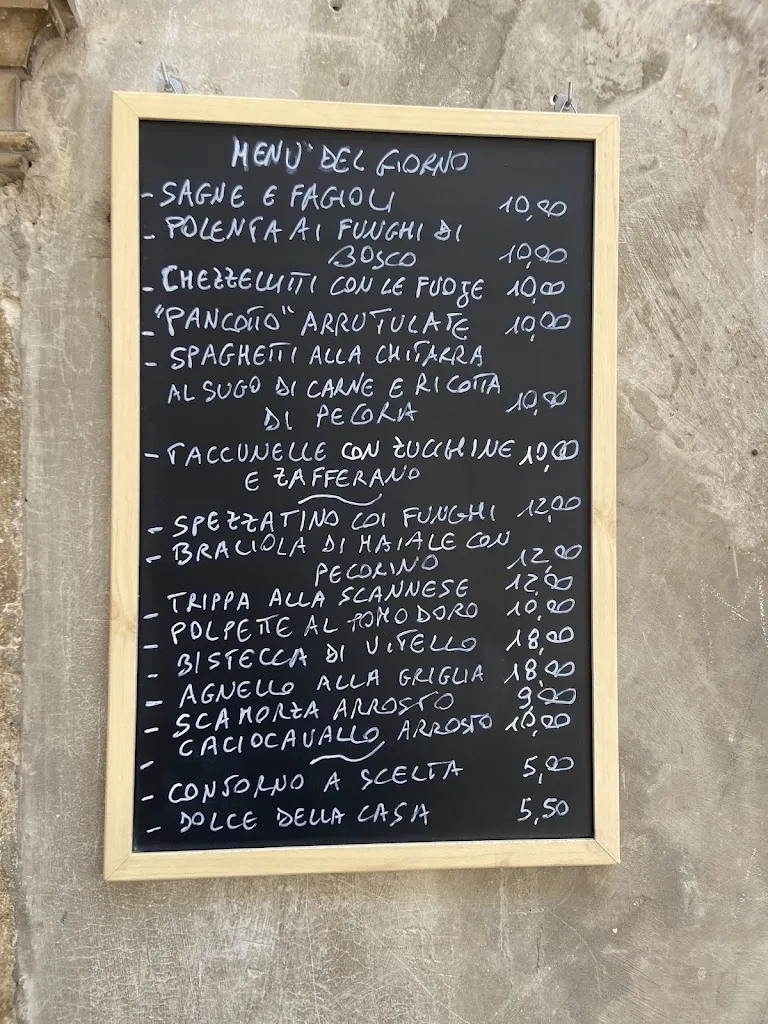 MENU" DEL GIORNO
- SAGNE E FAGIOLI 10,00
- POLENTA AI FUNGHI DI
BOSCO 10,00
- CHEZZELLITTI CON LE FUOJE 10,00
- "PANCOTTO" ARRUTULATE 10,00
- SPAGHETTI ALLA CHITARRA
AL SUGO DI CARNE E RICOTTA
DI PECORA 10,00
- TACCUNELLE CON ZUCCHINE 10,00
E ZAFFERANO
- SPEZZATINO COI FUNGHI 12,00
- BRACIOLA DI MAIALE CON
PECORINO 12,00
- TRIPPA ALLA SCANNESE 12,00
- POLPETTE AL POMODORO 10,00
- BISTECCA DI VITELLO 18,00
- AGNELLO ALLA GRIGLIA 18,00
- SCAMORZA ARROSTO 9,00
- CACIOCAVALLO ARROSTO 10,00
- CONTORNO A SCELTA 5,00
- DOLCE DELLA CASA 5,50